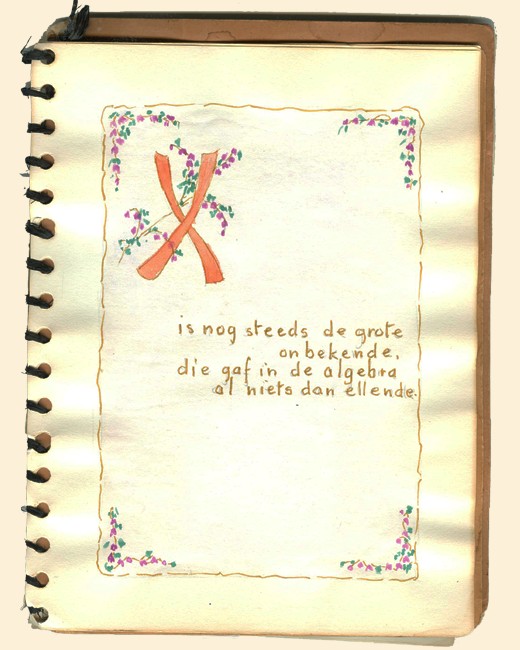 X
is nog steeds de grote
onbekende,
die gaf in de algebra
al niets dan ellende.